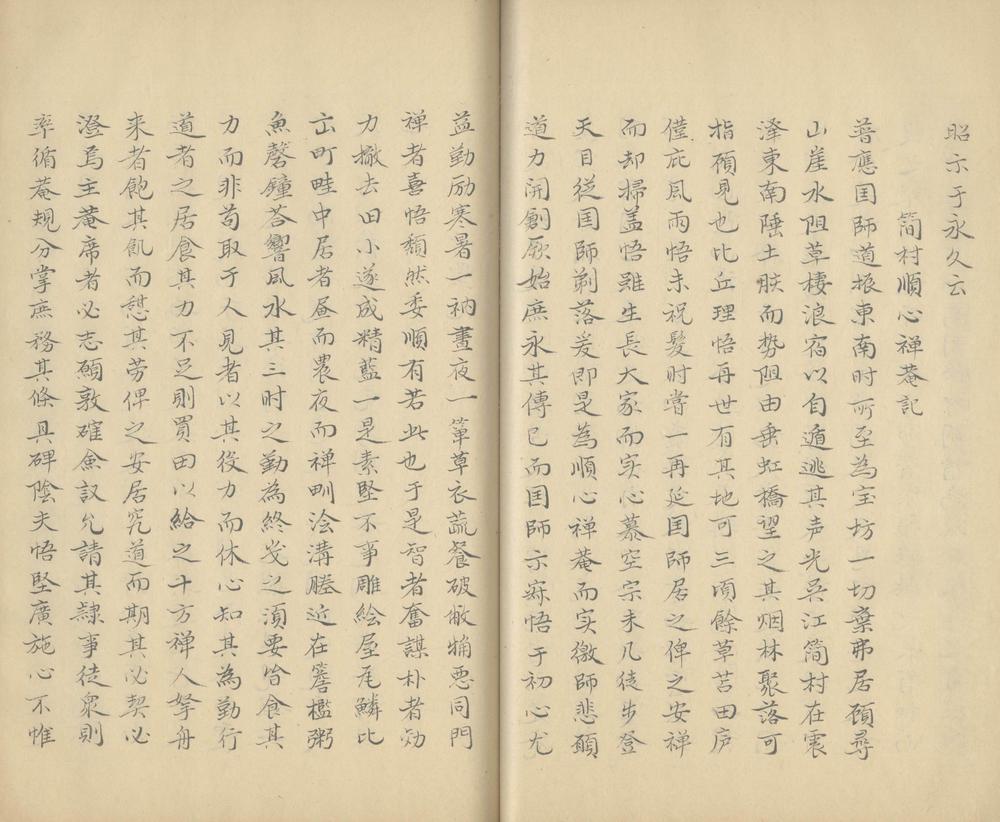 昭示于永久云
简村順心禅菴記
普應囯師道振東南时所至為宝坊一切棄弗居顾尋
山崖水阻草棲浪宿以自遁逃其声光吴江简村在震
泽東南陲土腴而势阻由垂虹橋望之其烟林聚落可
指顾見也比丘理悟再世有其地可三頃餘草苫田庐
僅庇風雨悟未祝髮时嘗一再延囯師居之俾之安禅
而却掃盖悟雖生長大家而实心慕空宗未几徒步登
天目従囯師剃落爰即是為順心禅菴而实徼師悲願
道力開創厥始庶永其傳已而囯師示寂悟于初心尤
益勤励寒暑一衲晝夜一簞草衣蔬餐破敝觕悪同門
禅者喜悟頺然委順有若此也于是智者奮謀朴者効
力撤去旧小遂成精藍一是素堅不事雕绘屋瓦鱗比
㐫町畦中居者昼而農夜而禅甽浍溝塍近在簷楹粥
魚磬鐘荅響風水其三时之勤為終岁之湏要皆食其
力而非苟取于人見者以其役力而休心知其為勤行
道者之居食其力不足則買田以給之十方禅人拏舟
来者飽其飢而憇其劳俾之安居究道而期其必契必
澄焉主菴席者必志願敦確僉議允請其隷事徒衆則
率循菴規分掌庶務其條具碑陰夫悟堅廣施心不惟